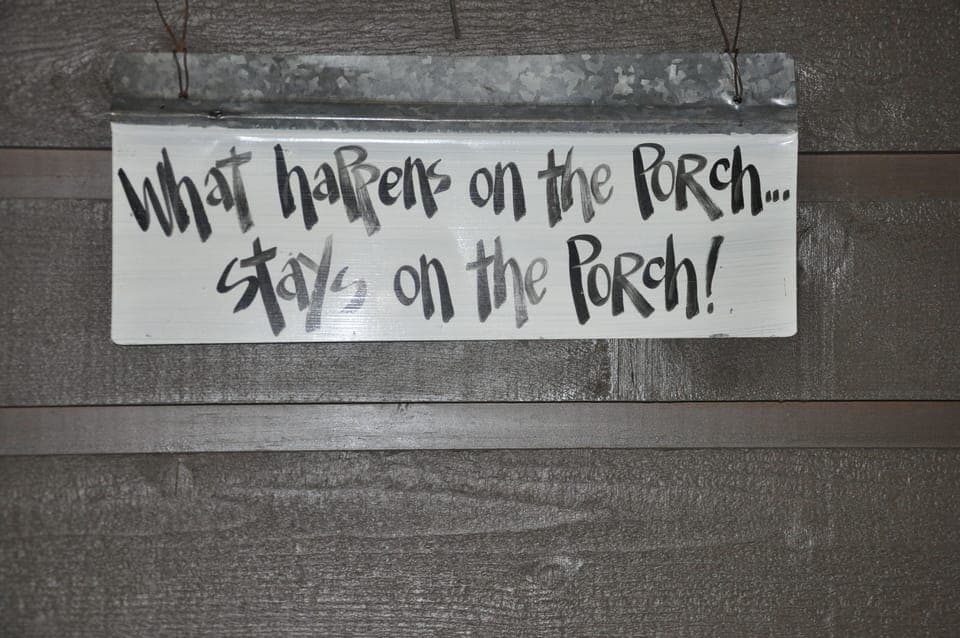 What happens on the Porch...
stays on the Porch!